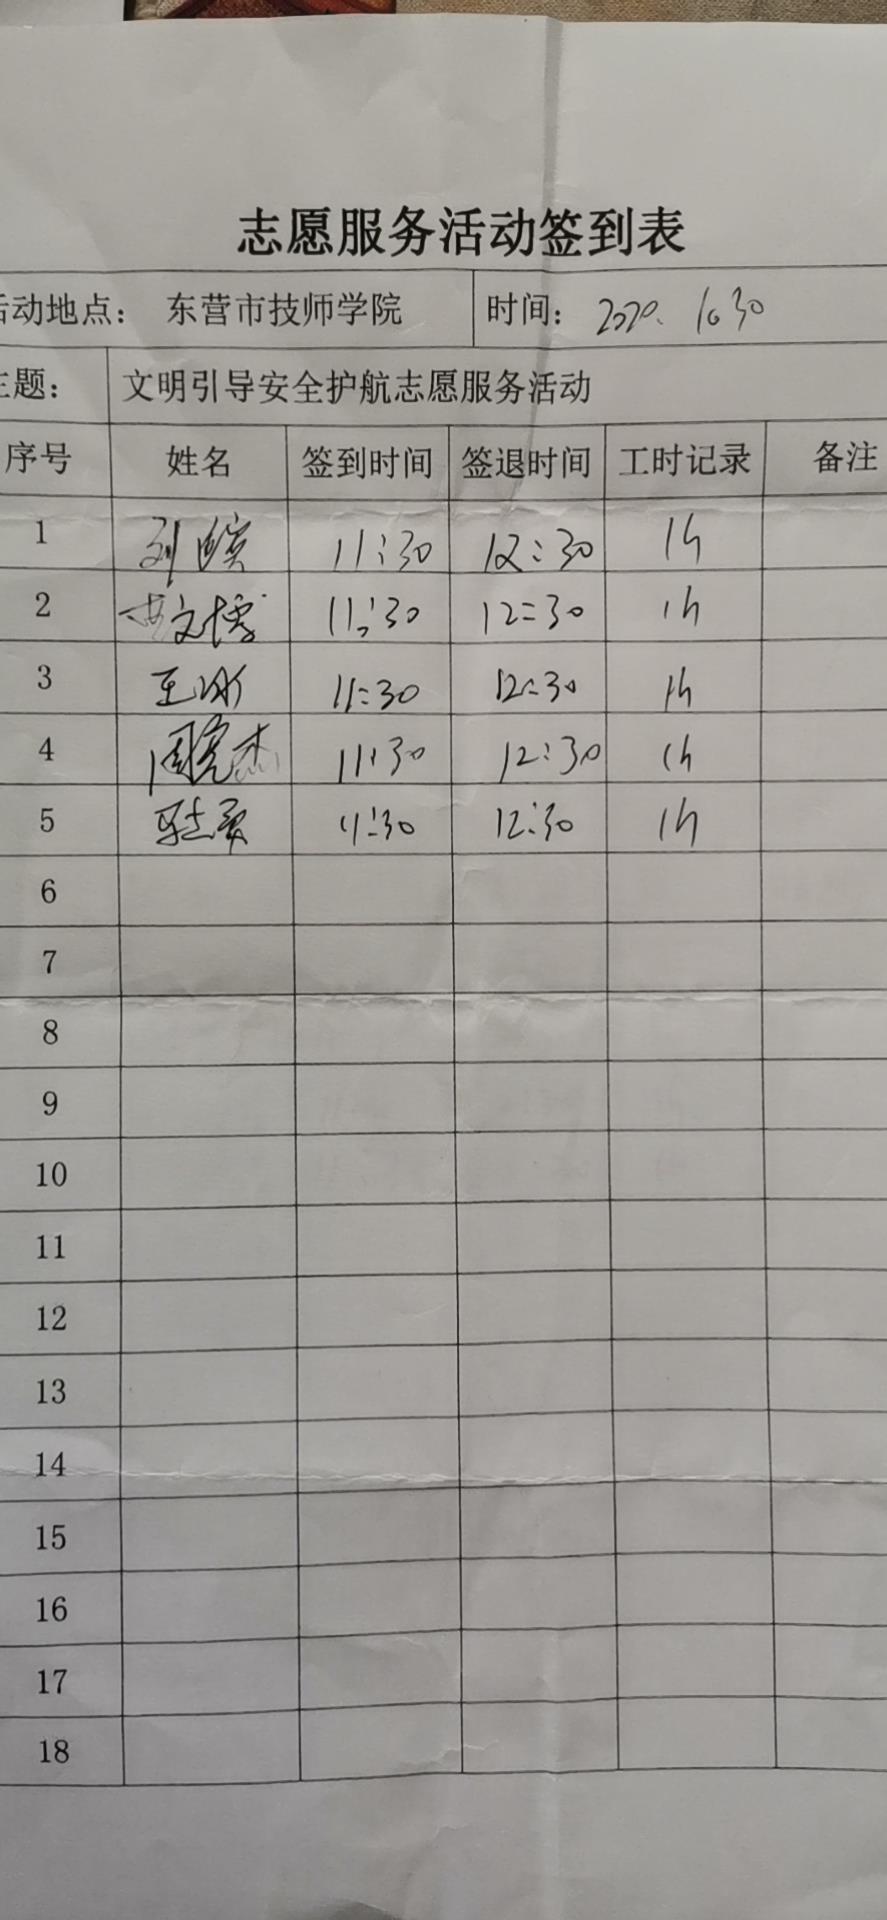 志愿服务活动签到表
活动地点： 东营市技师学院 时间： 2020. 10 30
主题： 文明引导安全护航志愿服务活动
序号 姓名 签到时间 签退时间 工时记录 备注
1 刘 11:30 12:30 1h
2 文博 11:30 12:30 1h
3 王 11:30 12:30 1h
4 周亮杰 11:30 12:30 1h
5 11:30 12:30 1h
6
7
8
9
10
11
12
13
14
15
16
17
18